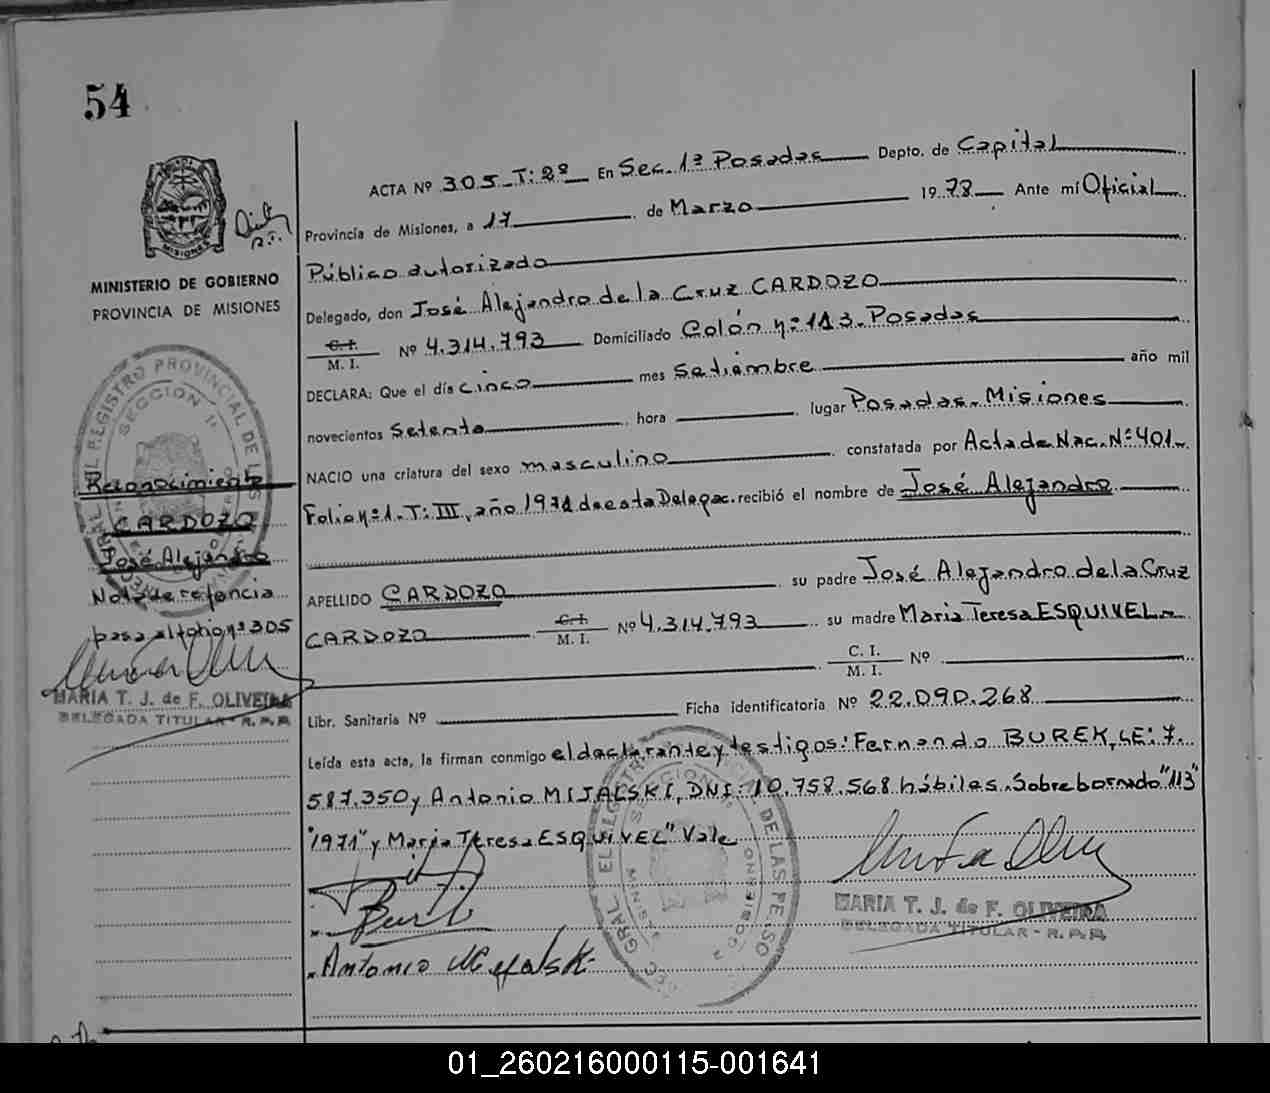 54
ACTA Nº 305-T:2º En Sec. 1ª Posadas Depto. de Capital
Provincia de Misiones, a 17 de Marzo 1978 Ante mí Oficial
MISIONES
MINISTERIO DE GOBIERNO
PROVINCIA DE MISIONES
Público autorizado
Delegado, don José Alejandro de la Cruz CARDOZO
C.I. M. I. Nº 4.314.793 Domiciliado Colón nº 113. Posadas
DECLARA: Que el día cinco mes Setiembre año mil
novecientos Setenta hora lugar Posadas. Misiones
NACIO una criatura del sexo masculino constatada por Acta de Nac. Nº 401
Folio nº 1. T: III, año 1971 de esta Delegac. recibió el nombre de José Alejandro
APELLIDO CARDOZO su padre José Alejandro de la Cruz
CARDOZO C.I. M. I. Nº 4.314.793 su madre Maria Teresa ESQUIVEL
C. I. M. I. Nº
Libr. Sanitaria Nº Ficha identificatoria Nº 22.090.268
Leída esta acta, la firman conmigo el declarante y testigos: Fernando BUREK, LE: 7.
587.350 y Antonio MIJALSKI, DNI: 10.758.568 hábiles. Sobrebornado "113"
"1971" y Maria Teresa ESQUIVEL" Vale
Reconocimiento
CARDOZO
José Alejandro
Nota de refencia
pasa al folio nº 305
MARIA T. J. de F. OLIVEIRA
DELEGADA TITULAR - R. P. P.
REGISTRO PROVINCIAL DE LAS
SECCION 1ª
SECCION
DE LAS PERSO
MARIA T. J. de F. OLIVEIRA
DELEGADA TITULAR - R. P. P.
Antonio Mijalski
01_260216000115-001641